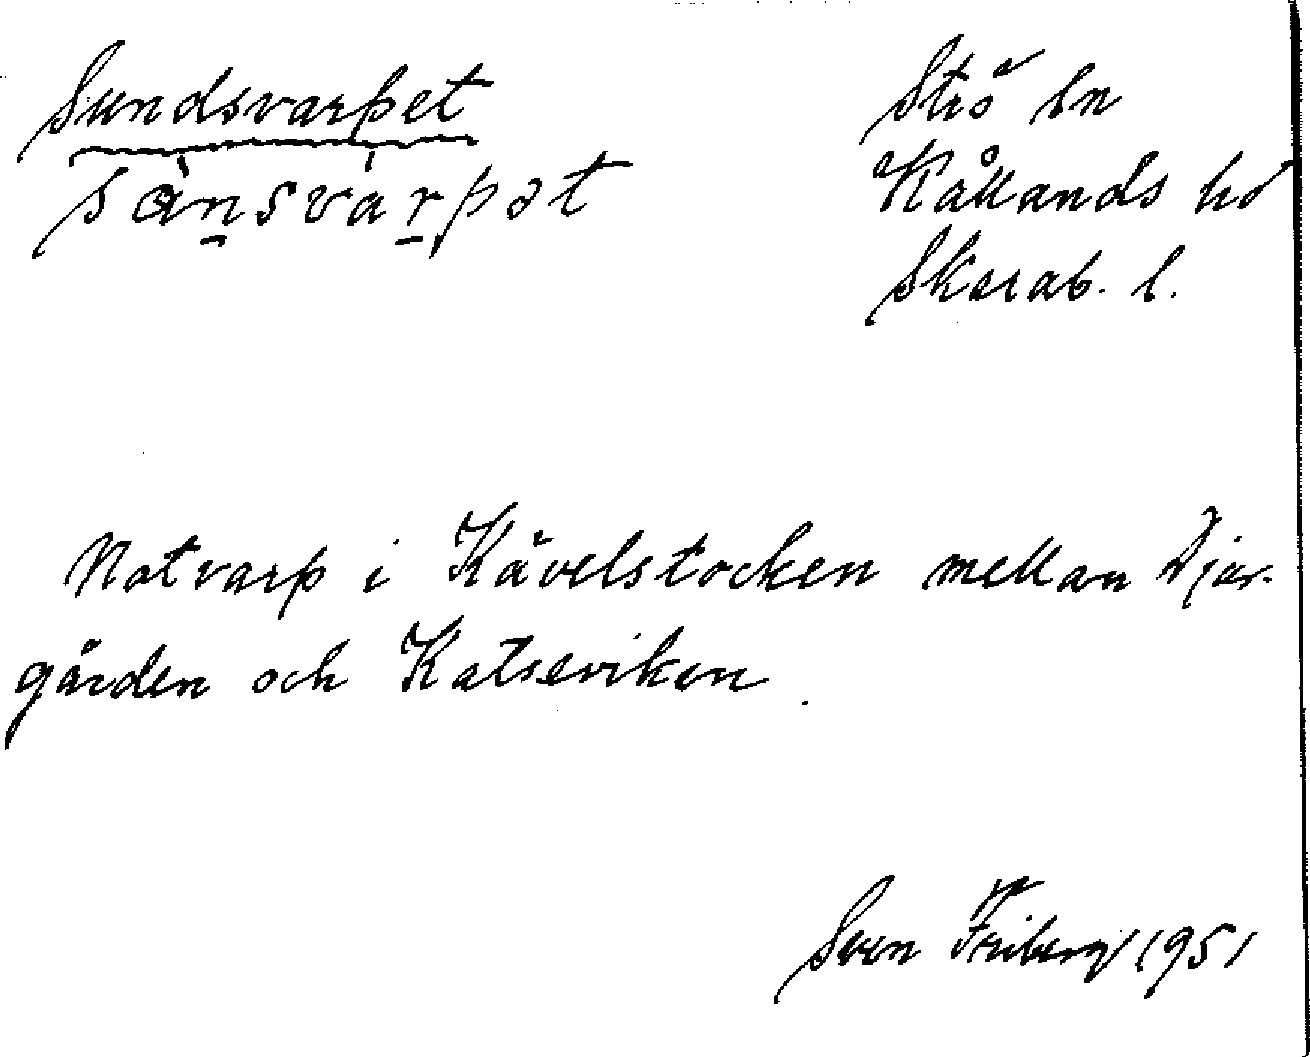 Sundsvarpet
sànsvàrpət
Strö sn
Kållands hd
Skarab. l.
Notvarp i Kävelstocken mellan Djur-
gården och Katseviken.
Sven Friberg 1951